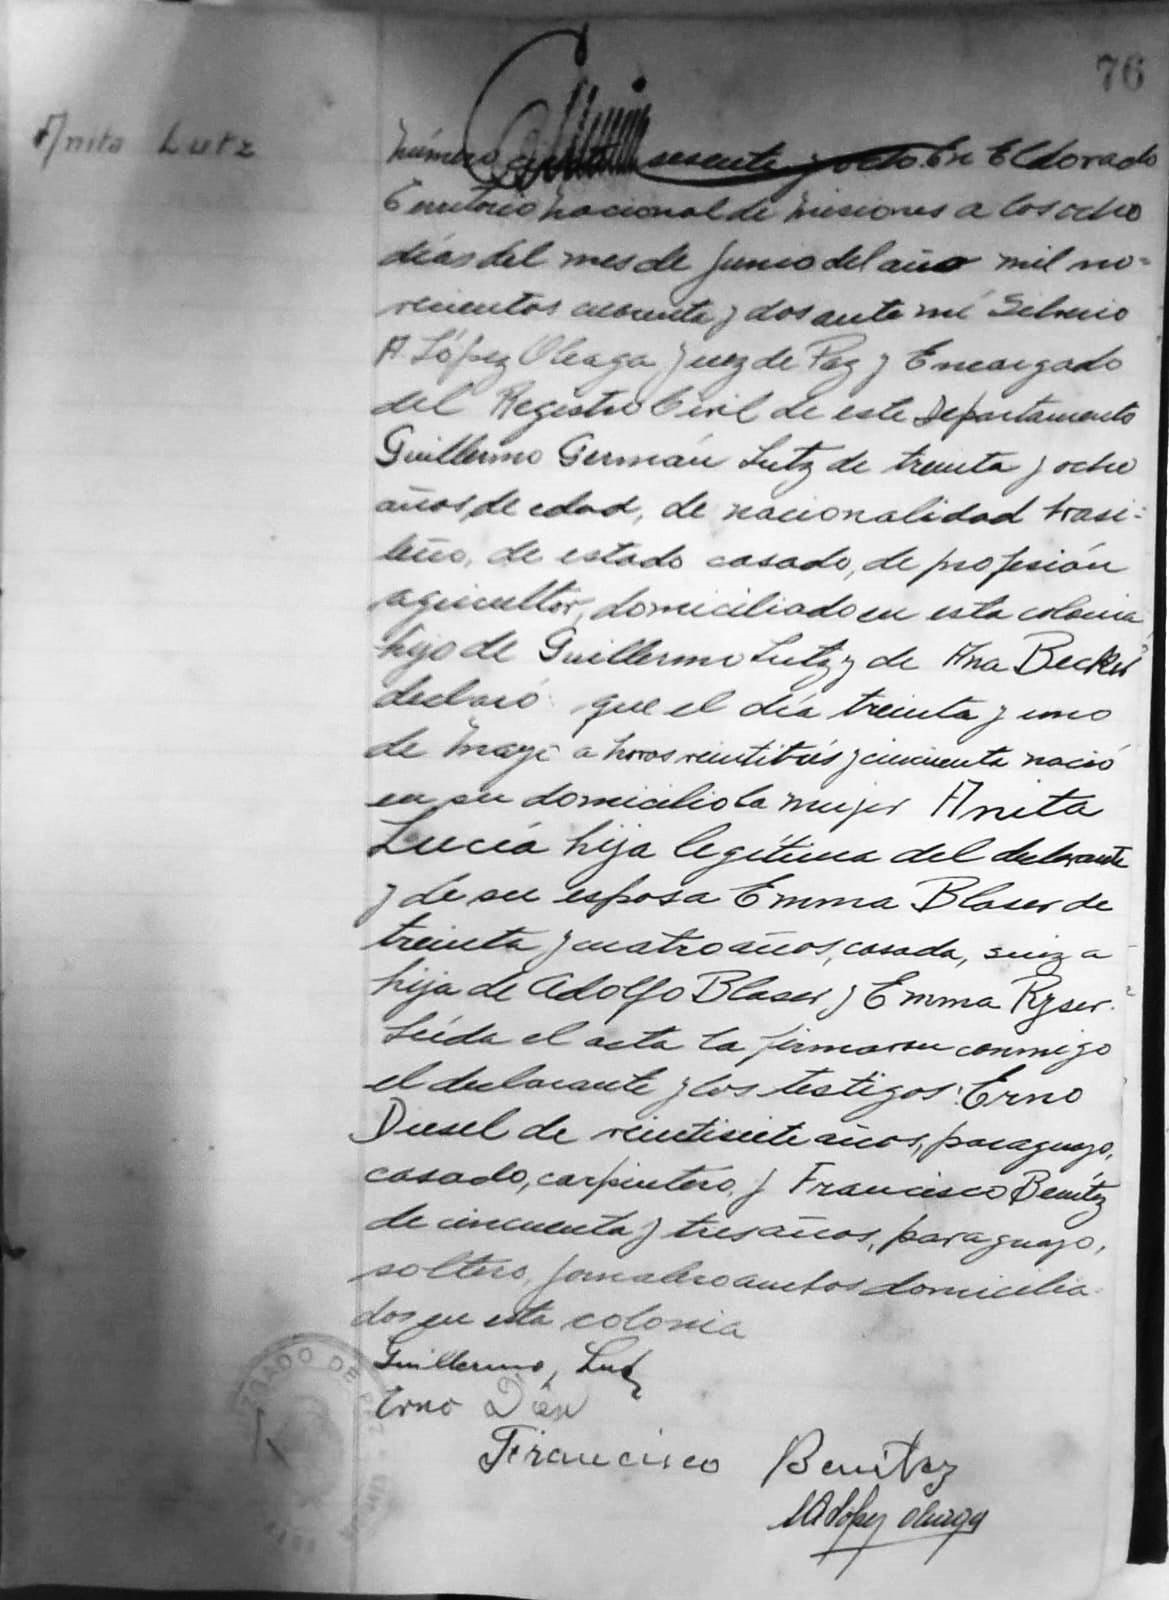 76
Anita Lutz
Número sesenta y ocho. En Eldorado
Territorio Nacional de Misiones a los ocho
días del mes de Junio del año mil no=
vecientos cuarenta y dos ante mí Silverio
A. López Oleaga Juez de Paz y Encargado
del Registro Civil de este Departamento
Guillermo Germán Lutz de treinta y ocho
años de edad, de nacionalidad brasi=
leño, de estado casado, de profesión
agricultor, domiciliado en esta colonia
hijo de Guillermo Lutz y de Ana Becker
declaró que el día treinta y uno
de Mayo a horas veintitrés y cincuenta nació
en su domicilio la mujer Anita
Lucía hija legítima del declarante
y de su esposa Emma Blaser de
treinta y cuatro años, casada, suiza
hija de Adolfo Blaser y Emma Ryser.
Leída el acta la firmaron conmigo
el declarante y los testigos: Erno
Diesel de veintisiete años, paraguayo,
casado, carpintero, y Francisco Benítez
de cincuenta y tres años, paraguayo,
soltero, jornalero ambos domicilia=
dos en esta colonia
Guillermo, Lutz
Erno
Francisco Benitez
SALópez Oleaga
JUZGADO DE